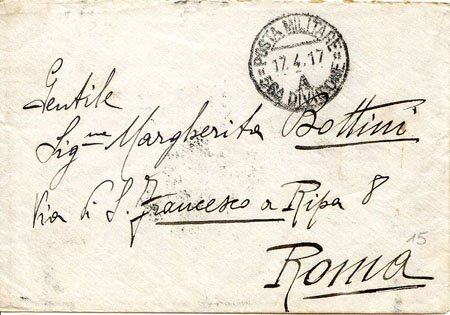 POSTA MILITARE
17.4.17
A
56A DIVISIONE
Gentile
Sig.na Margherita Bottini
Via di S. Francesco a Ripa 8
15
Roma